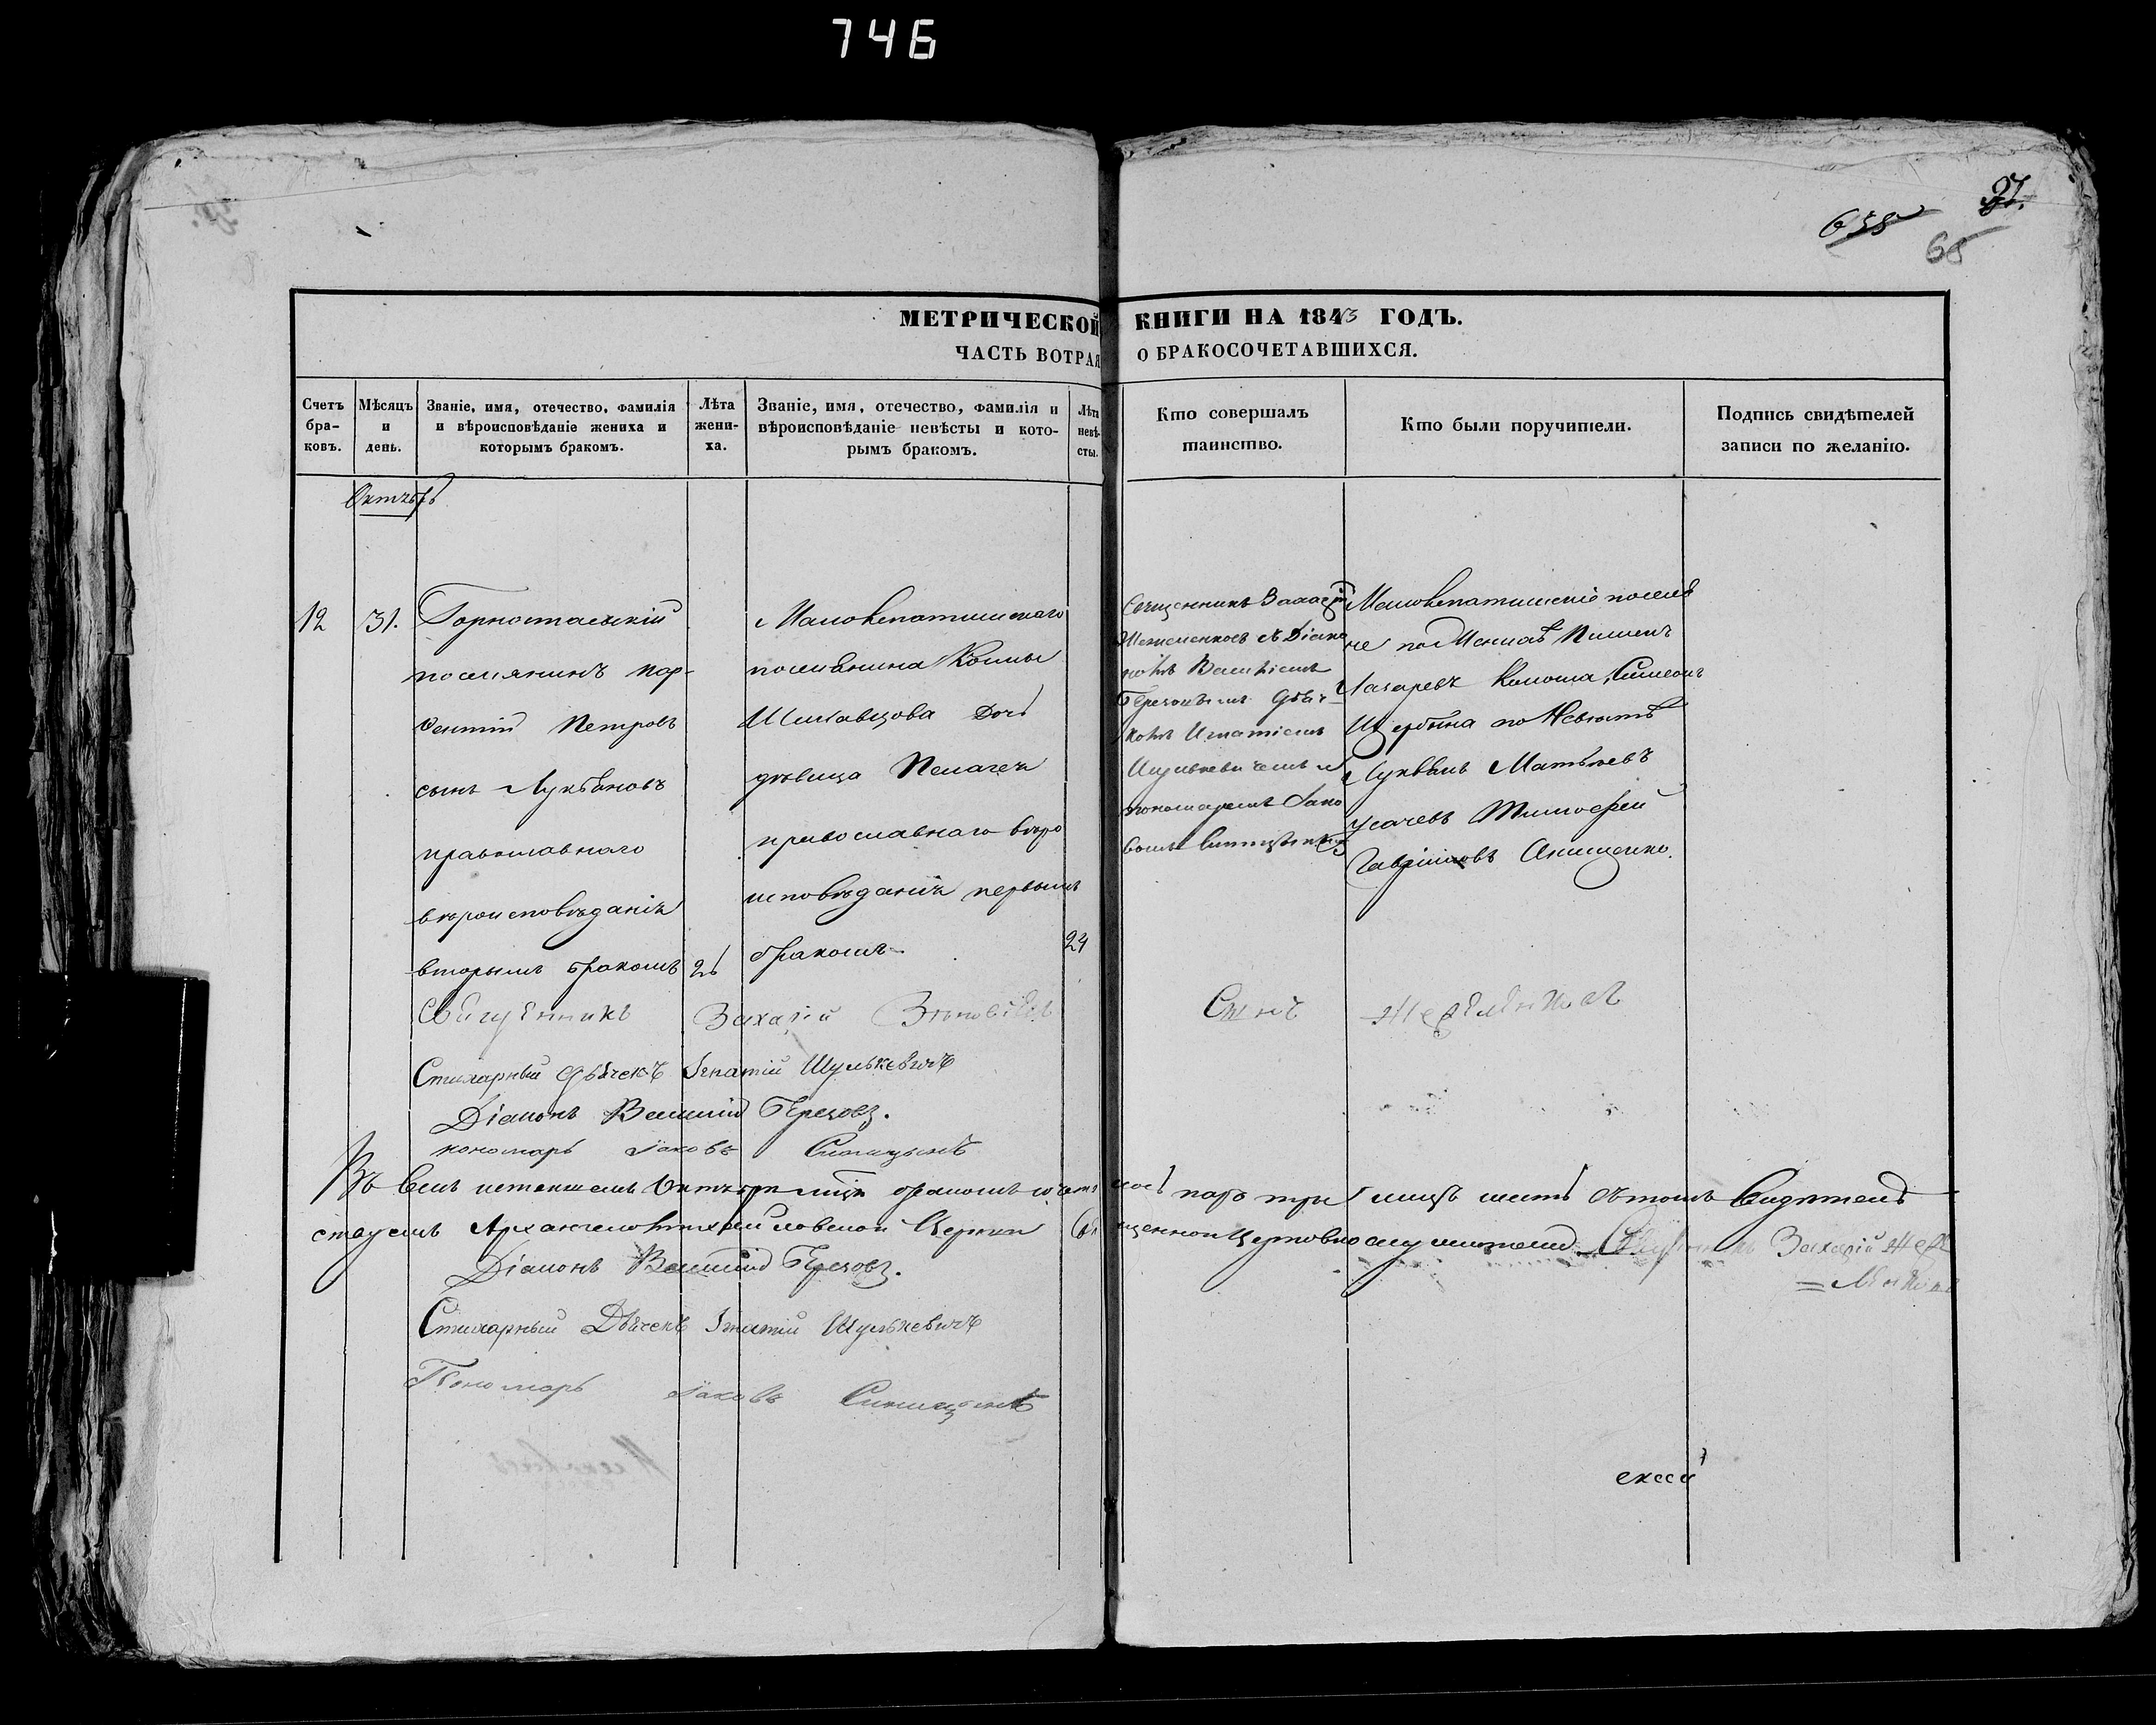 746
37.
638
68
МЕТРИЧЕСКОЙ КНИГИ НА 1843 ГОДЪ.
ЧАСТЬ ВОТРАЯ О БРАКОСОЧЕТАВШИХСЯ.
Счетъ бра-ковъ.
Мѣсяцъ и день.
Званіе, имя, отечество, фамилія и вѣроисповѣданіе жениха и которымъ бракомъ.
Лѣта жени-ха.
Званіе, имя, отечество, фамилія и вѣроисповѣданіе невѣсты и кото-рымъ бракомъ.
Лѣта невѣ-сты.
Кто совершалъ таинство.
Кто были поручители.
Подпись свидѣтелей записи по желанію.
12
31.
Горностаевскій
поселянинъ Пар-
ѳентій Петровъ
сынъ Лукьяновъ
православнаго
вѣроисповѣданія
вторымъ бракомъ
поселянина Козмы
Дочь
дѣвица Пелагея
православнаго вѣро
исповѣданія первымъ
бракомъ
24
Священникъ Захарій
съ Діако
номъ Василіемъ
Греховымъ Дьяч-
комъ Игнатіемъ
Шулькевичемъ и
пономаремъ Іако
вомъ
поселя
не по Женихѣ Пименъ
Лазаревъ Симеонъ
Щербина по Невѣстѣ
Лукьянъ Матвѣевъ
Усачевъ Тимофей
Гавриловъ Онищенко.
Священникъ Захарій Зѣновіевъ Сынъ
Стихарный Дьячекъ Игнатій Шулькевичъ
Діаконъ Василій Греховъ.
пономарь Іаковъ Синицынъ
Въ семъ истекшемъ Октябрѣ мѣсяцѣ бракомъ сочеталось паръ три лицъ шесть въ томъ Свидѣтель
ствуемъ Архангело Михайловской Церкви Священноцерковнослужители Священникъ Захарій
Діаконъ Василій Греховъ.
Стихарный Дьячекъ Игнатій Шулькевичъ
Пономарь Іаковъ Синицынъ